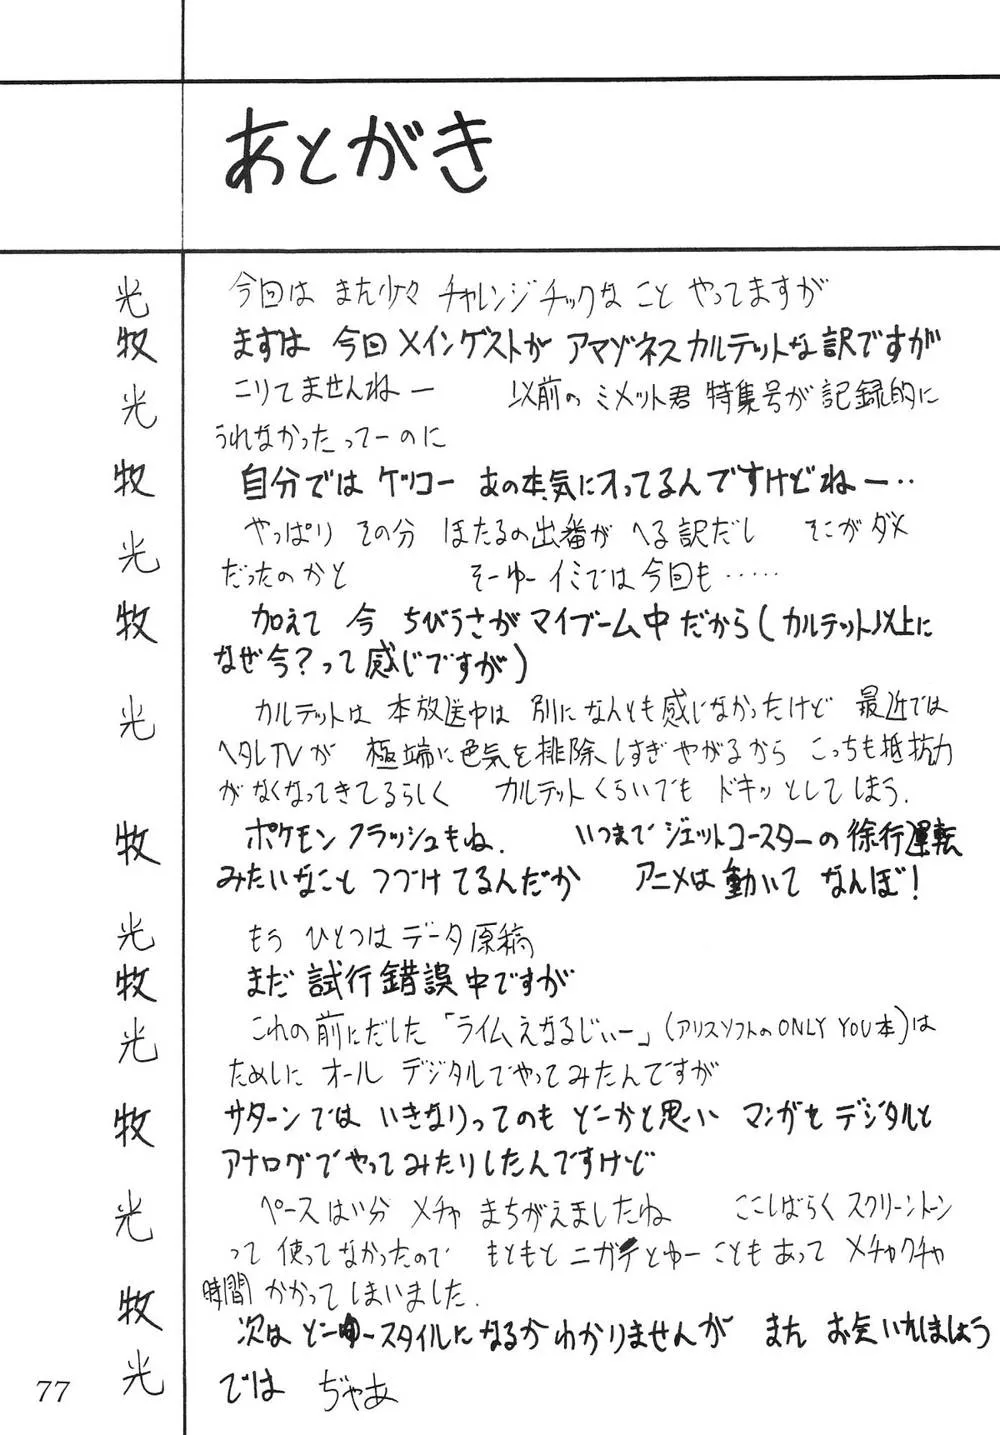 あとがき
光 今回は また少々 チャレンジチックなこと やってますが
牧 まずは 今回メインゲストが アマゾネスカルテットな訳ですが
光 こりてませんねー 以前のミメット君特集号が記録的に
うれなかったってーのに
牧 自分では ケッコー あの本気に入ってるんですけどねー‥
光 やっぱり その分 ほたるの出番が へる訳だし そこがダメ
だったのかと そーゆーイミでは今回も‥‥‥
牧 加えて 今 ちびうさがマイブーム中だから(カルテット以上に
なぜ今?って感じですが)
光 カルテットは 本放送中は 別になんとも感じなかったけど 最近では
ヘタレTVが 極端に色気を排除しすぎやがるから こっちも抵抗力
がなくなってきてるらしく カルテットくらいでも ドキッとしてしまう.
牧 ポケモンフラッシュもね. いつまでジェットコースターの徐行運転
みたいなこと つづけてるんだか アニメは動いて なんぼ!
光 もう ひとつはデータ原稿
牧 まだ試行錯誤中ですが
光 これの前にだした「ライムえなるじぃー」(アリスソフトのONLY YOU本)は
ためしに オール デジタルでやってみたんですが
牧 サターンでは いきなりってのも どーかと思い マンガをデジタルと
アナログでやってみたりしたんですけど
光 ペースは 分 メチャ まちがえましたね ここしばらくスクリーントーン
って 使ってなかったので もともと ニガテとゆーこともあって メチャクチャ
時間かかってしまいました.
牧 次は どーゆースタイルになるかわかりませんが また お会いしましょう
光 では ぢゃあ
77